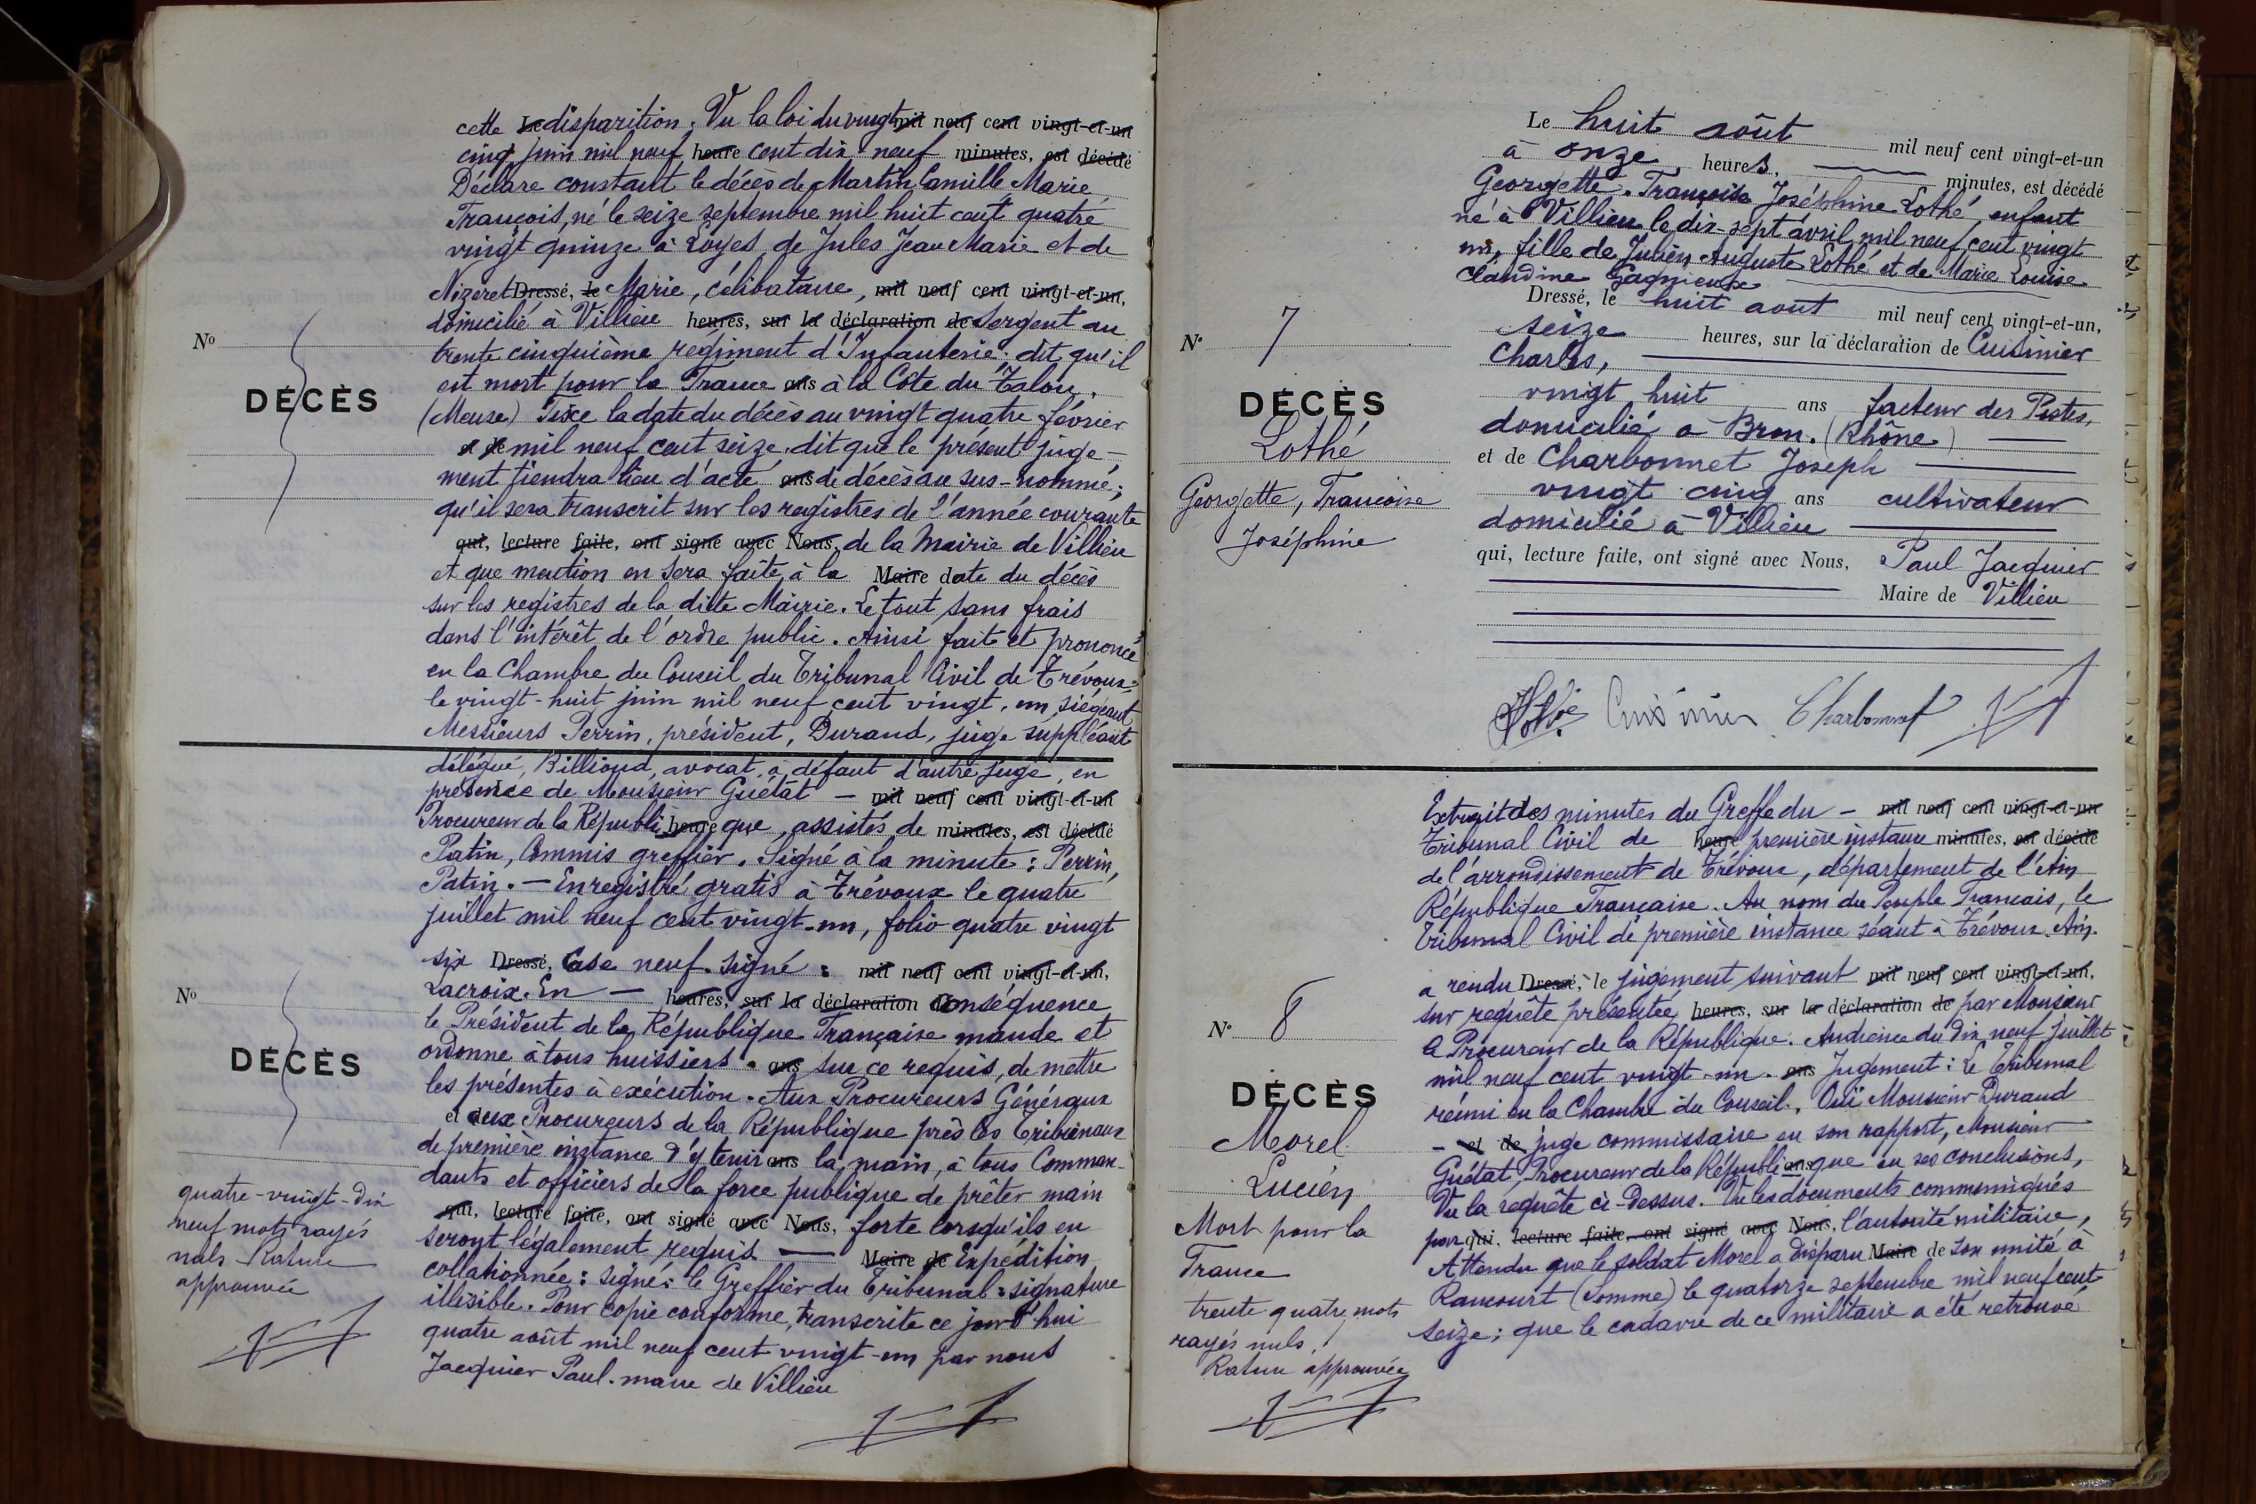 cette Le disparition. Vu la loi du vingt mil neuf cent vingt-et-un
cinq juin mil neuf heure cent dix neuf minutes, est décédé
Déclare constant le décès de Martin Camille Marie
François, né le seize septembre mil huit cent quatre
vingt quinze à Loyes, de Jules Jean Marie et de
Nizeret Dressé, le Marie, célibataire, mil neuf cent vingt-et-un,
domicilié à Villieu heures, sur la déclaration de Sergent au
trente cinquième régiment d'Infanterie; dit qu'il
est mort pour la France ans à la Côte du Talou,
(Meuse) Fixe la date du décès au vingt quatre février
et de mil neuf cent seize, dit que le présent juge-
ment tiendra lieu d'acte ans de décès au sus-nommé;
qu'il sera transcrit sur les registres de l'année courante
qui, lecture faite, ont signé avec Nous, de la Mairie de Villieu
et que mention en sera faite, à la Maire date du décès
sur les registres de la dite Mairie. Le tout sans frais
dans l'intérêt de l'ordre public. Ainsi fait et prononcé
en la Chambre du Conseil du Tribunal Civil de Trévoux,
le vingt-huit juin mil neuf cent vingt, un, siégeant
Messieurs Perrin, président, Durand, juge suppléant
No
DÉCÈS
délégué, Billioud, avocat, à défaut d'autre juge, en
présence de Monsieur Guétat — mil neuf cent vingt-et-un
Procureur de la Républi heure que, assistés de minutes, est décédé
Patin, Commis greffier. Signé à la minute: Perrin,
Patin. — Enregistré gratis à Trévoux le quatre
juillet mil neuf cent vingt-un, folio quatre vingt
six Dressé, Case neuf. Signé: mil neuf cent vingt-et-un,
Lacroix. En — heures, sur la déclaration de conséquence
le Président de la République Française mande et
ordonne à tous huissiers. ans sur ce requis, de mettre
les présentes à exécution. Aux Procureurs Généraux
et aux Procureurs de la République près les Tribunaux
de première instance d'y tenir ans la main, à tous Comman-
dants et officiers de la force publique de prêter main
qui, lecture faite, ont signé avec Nous, forte lorsqu'ils en
seront légalement requis — Maire de Expédition
collationnée: signé: le Greffier du Tribunal: signature
illisible. Pour copie conforme, transcrite ce jourd'hui
quatre août mil neuf cent vingt-un par nous
Jacquier Paul. maire de Villieu
No
DÉCÈS
quatre-vingt-dix
neuf mots rayés
nuls Rature
approuvée
Le huit août mil neuf cent vingt-et-un
à onze heures, minutes, est décédé
Georgette, Françoise Joséphine Lothé, enfant
né à Villieu le dix-sept avril mil neuf cent vingt
un, fille de Julien Auguste Lothé et de Marie Louise
Claudine Gagnieux
Dressé, le huit août mil neuf cent vingt-et-un,
seize heures, sur la déclaration de Cuisinier
Charles,
vingt huit ans facteur des Postes,
domicilié à Bron. (Rhône)
et de Charbonnet Joseph
vingt cinq ans cultivateur
domicilié à Villieu
qui, lecture faite, ont signé avec Nous, Paul Jacquier
Maire de Villieu
Lothé Cuisinier Charbonnet
No 7
DÉCÈS
Lothé
Georgette, Françoise
Joséphine
Extrait des minutes du Greffe du — mil neuf cent vingt-et-un
Tribunal Civil de heure première instance minutes, est décédé
de l'arrondissement de Trévoux, département de l'Ain
République Française. Au nom du Peuple Français, le
Tribunal Civil de première instance séant à Trévoux. Ain.
a rendu Dressé, le jugement suivant mil neuf cent vingt-et-un,
sur requête présentée heures, sur la déclaration de par Monsieur
le Procureur de la République. Audience du dix neuf juillet
mil neuf cent vingt-un. ans Jugement: Le Tribunal
réuni en la Chambre du Conseil. Ouï Monsieur Durand
- et de juge commissaire en son rapport, Monsieur
Guétat, Procureur de la Républi ans que en ses conclusions,
Vu la requête ci-dessus. Vu les documents communiqués
par qui, lecture faite, ont signé avec Nous, l'autorité militaire,
Attendu que le soldat Morel a disparu Maire de son unité à
Rancourt (Somme) le quatorze septembre mil neuf cent
seize; que le cadavre de ce militaire a été retrouvé
No 8
DÉCÈS
Morel
Lucien
Mort pour la
France
trente quatre mots
rayés nuls.
Rature approuvée